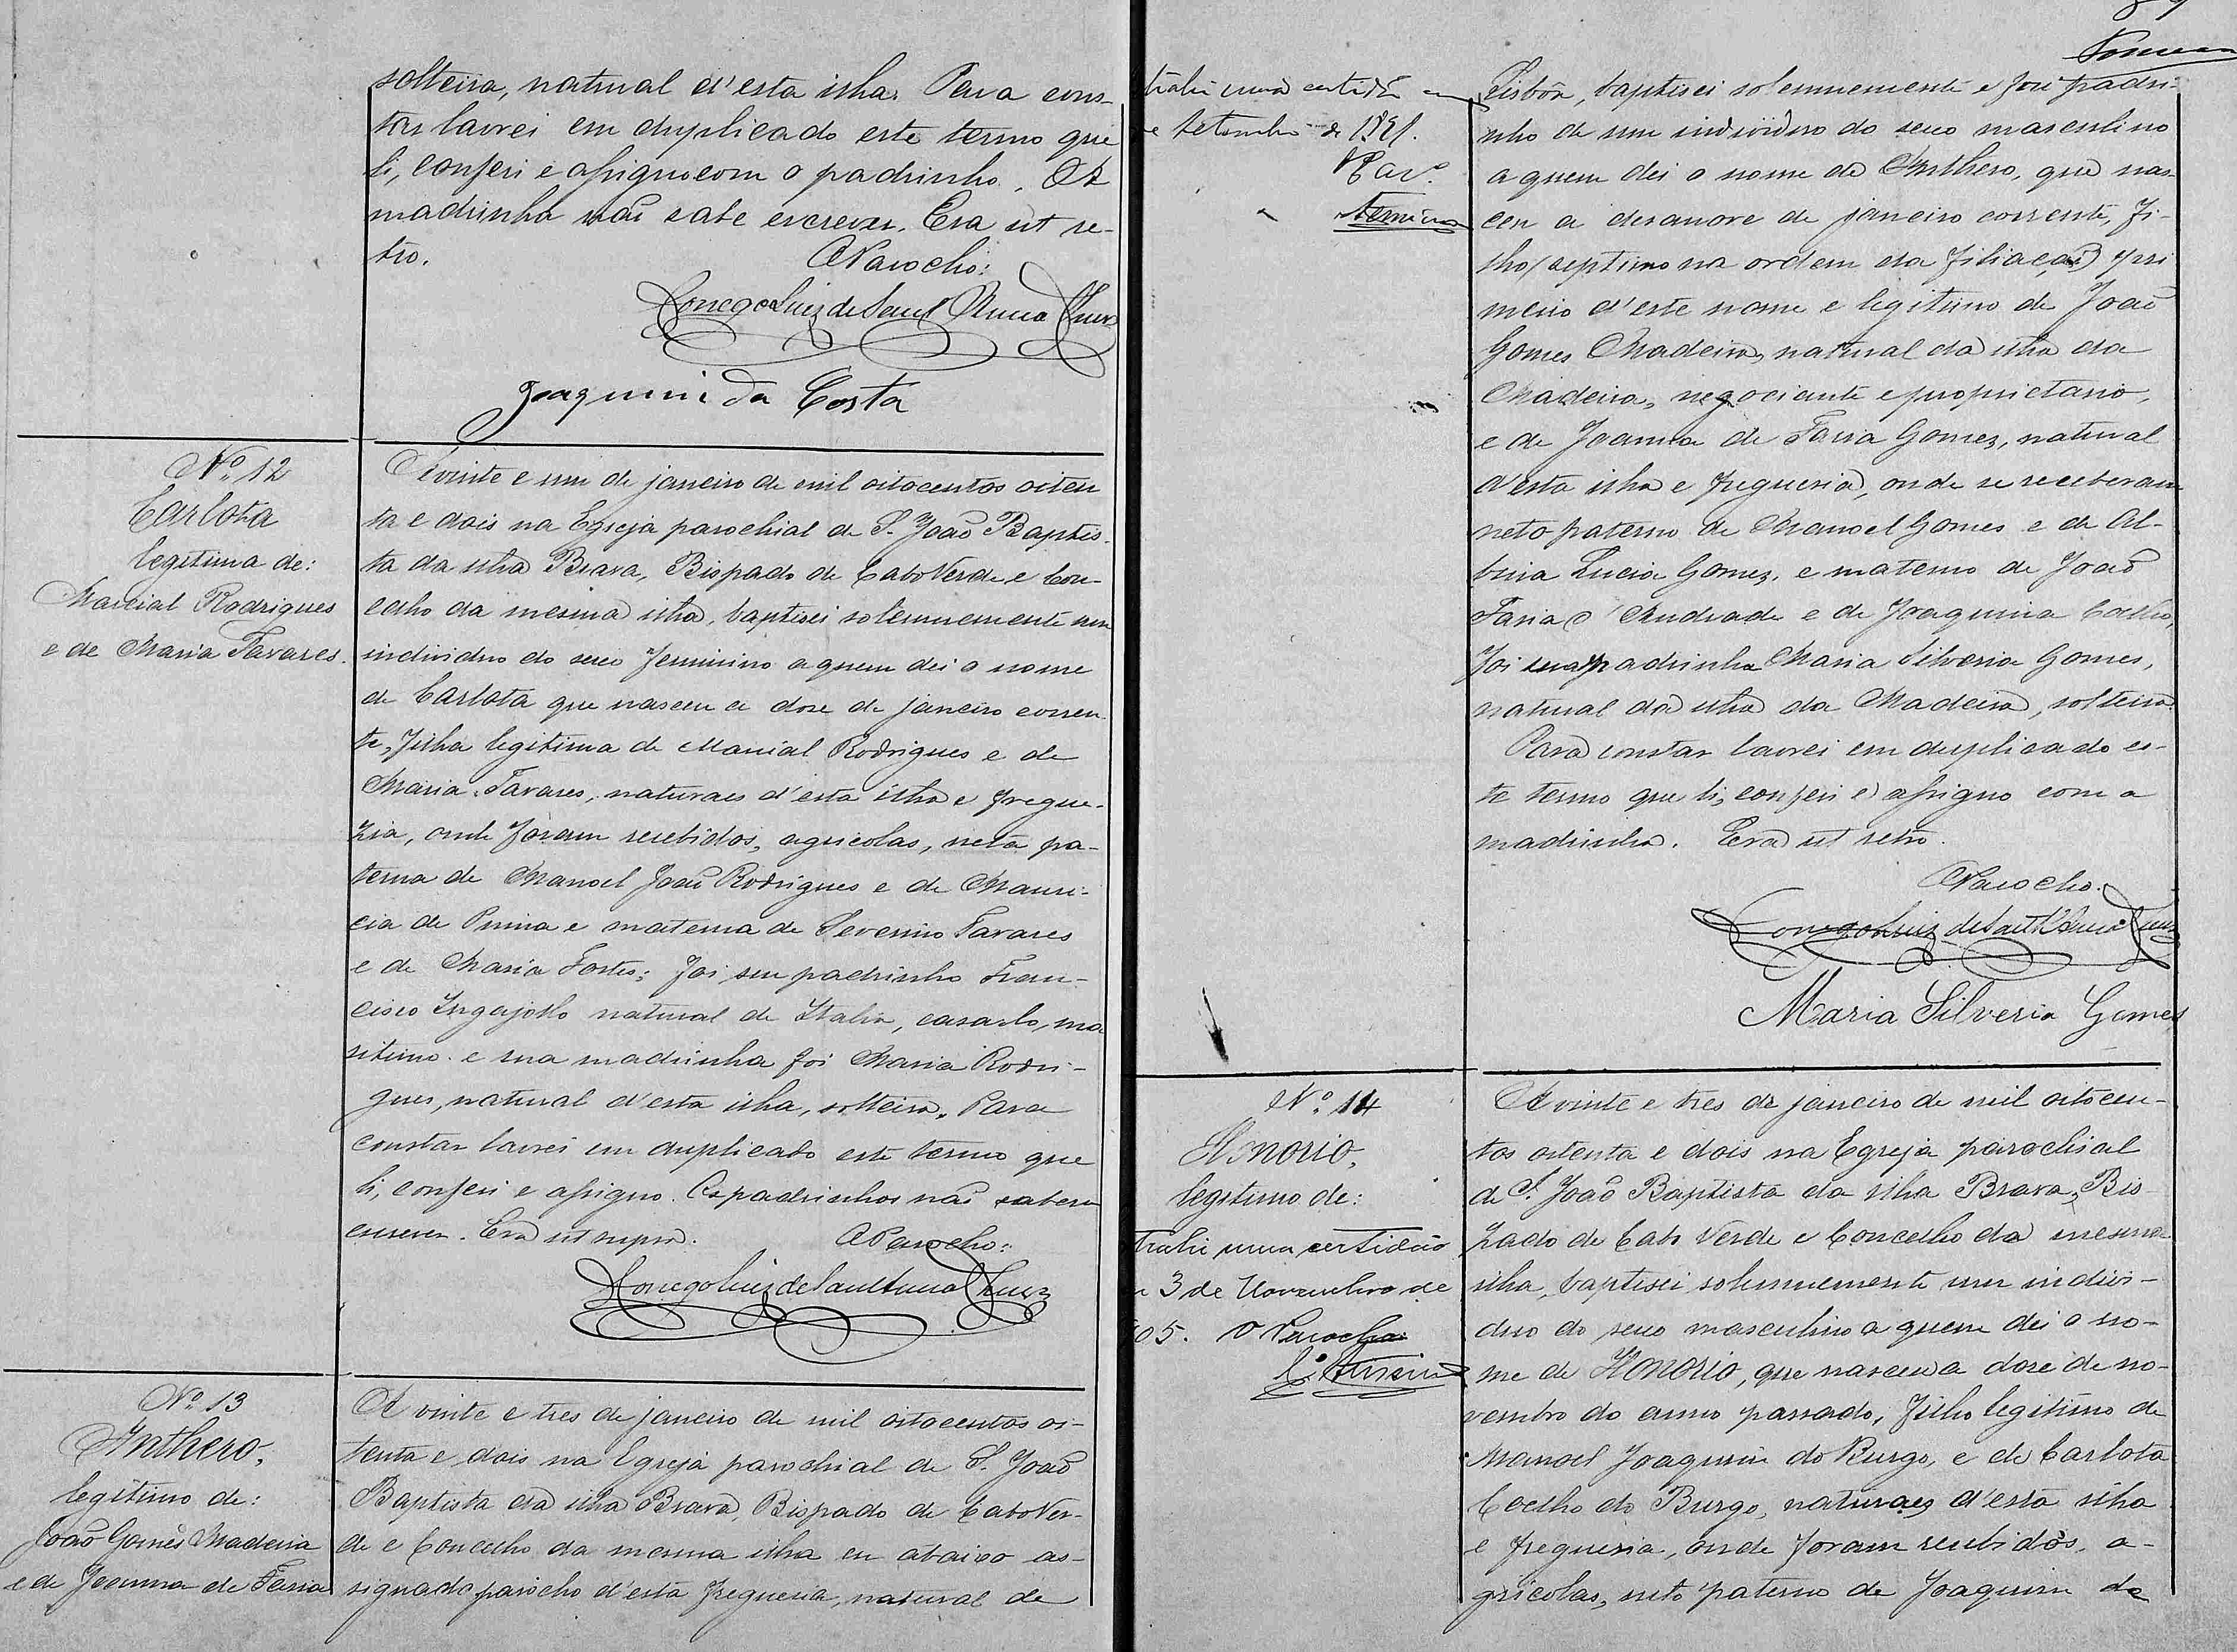 solteira, natural d'esta ilha. Para cons-
tar lavrei em duplicado este termo que
li, conferi e assigno com o padrinho. A
madrinha não sabe escrever. Era ut re-
tro.
O Parocho:
Conego Luiz de Sant'Anna
Joaquim da Costa
Nº 12
Carlota
legitima de:
Marcial Rodrigues
e de Maria Tavares.
A vinte e um de janeiro de mil oitocentos oiten
ta e dois na Egreja parochial de S. João Baptis-
ta da ilha Brava, Bispado de Cabo Verde e Con-
celho da mesma ilha, baptisei solemnemente um
individuo do sexo feminino a quem dei o nome
de Carlota que nasceu a doze de janeiro corren-
te, filha legitima de Marcial Rodrigues e de
Maria Tavares, naturaes d'esta ilha e fregue-
zia, onde foram recebidos, agricolas, neta pa-
terna de Manoel João Rodrigues e de Mauri-
cia de Pinna e materna de Severino Tavares
e de Maria Fortes; foi seu padrinho Fran-
cisco natural de Italia, casado, ma
ritimo e sua madrinha foi Maria Rodri-
gues, natural d'esta ilha, solteira. Para
constar lavrei em duplicado este termo que
li, conferi e assigno. Os padrinhos não sabem
escrever. Era ut supra.
O Parocho:
Conego Luiz de Sant'Anna
Nº 13
Anthero,
legitimo de:
João Gomes Madeira
e de Joanna de Faria
A vinte e tres de janeiro de mil oitocentos oi-
tenta e dois na Egreja parochial de S. João
Baptista da ilha Brava, Bispado de Cabo Ver-
de e Concelho da mesma ilha eu abaixo as-
signado parocho d'esta freguesia, natural de
trahi uma certidão em
de Setembro de 1891.
Lisbôa, baptisei solemnemente e foi padri-
nho de um individuo do sexo masculino
a quem dei o nome de Anthero, que nas-
ceu a desanove de janeiro corrente, fi-
lho (septimo na ordem da filiação) pri
meiro d'este nome e legitimo de João
Gomes Madeira, natural da ilha da
Madeira, negociante e proprietario,
e de Joanna de Faria Gomes, natural
d'esta ilha e freguesia, onde se receberam
neto paterno de Manoel Gomes e de Al-
bina Lucia Gomes, e materno de João
Faria d'Andrade e de Joaquina Coelho,
foi sua madrinha Maria Silveria Gomes,
natural da ilha da Madeira, solteira.
Para constar lavrei em duplicado es-
te termo que li, conferi e assigno com a
madrinha. Era ut retro.
O Parocho.
Conego Luiz de Sant'Anna
Maria Silveria Gomes
Nº 14
Honorio,
legitimo de:
trahi uma certidão
3 de Novembro de
05. O Parocho
A vinte e tres de janeiro de mil oitocen-
tos oitenta e dois na Egreja parochial
de S. João Baptista da ilha Brava, Bis-
pado de Cabo Verde e Concelho da mesma
ilha, baptisei solemnemente um indivi-
duo do sexo masculino a quem dei o no-
me de Honorio, que nasceu a doze de no-
vembro do anno passado, filho legitimo de
Manoel Joaquim do Burgo, e de Carlota
Coelho do Burgo, naturaes d'esta ilha
e freguesia, onde foram recebidos, a-
gricolas, neto paterno de Joaquim do